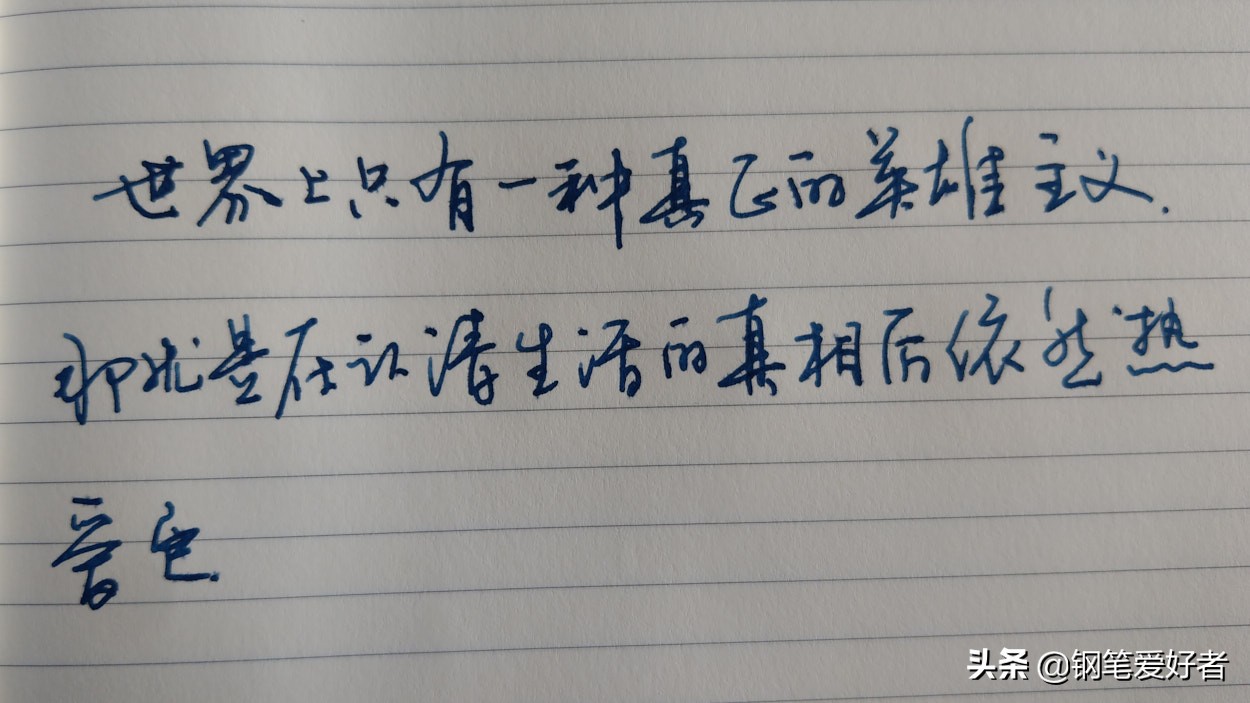 世界上只有一种真正的英雄主义.
那就是在认清生活的真相后依然热
爱它.
头条 @钢笔爱好者